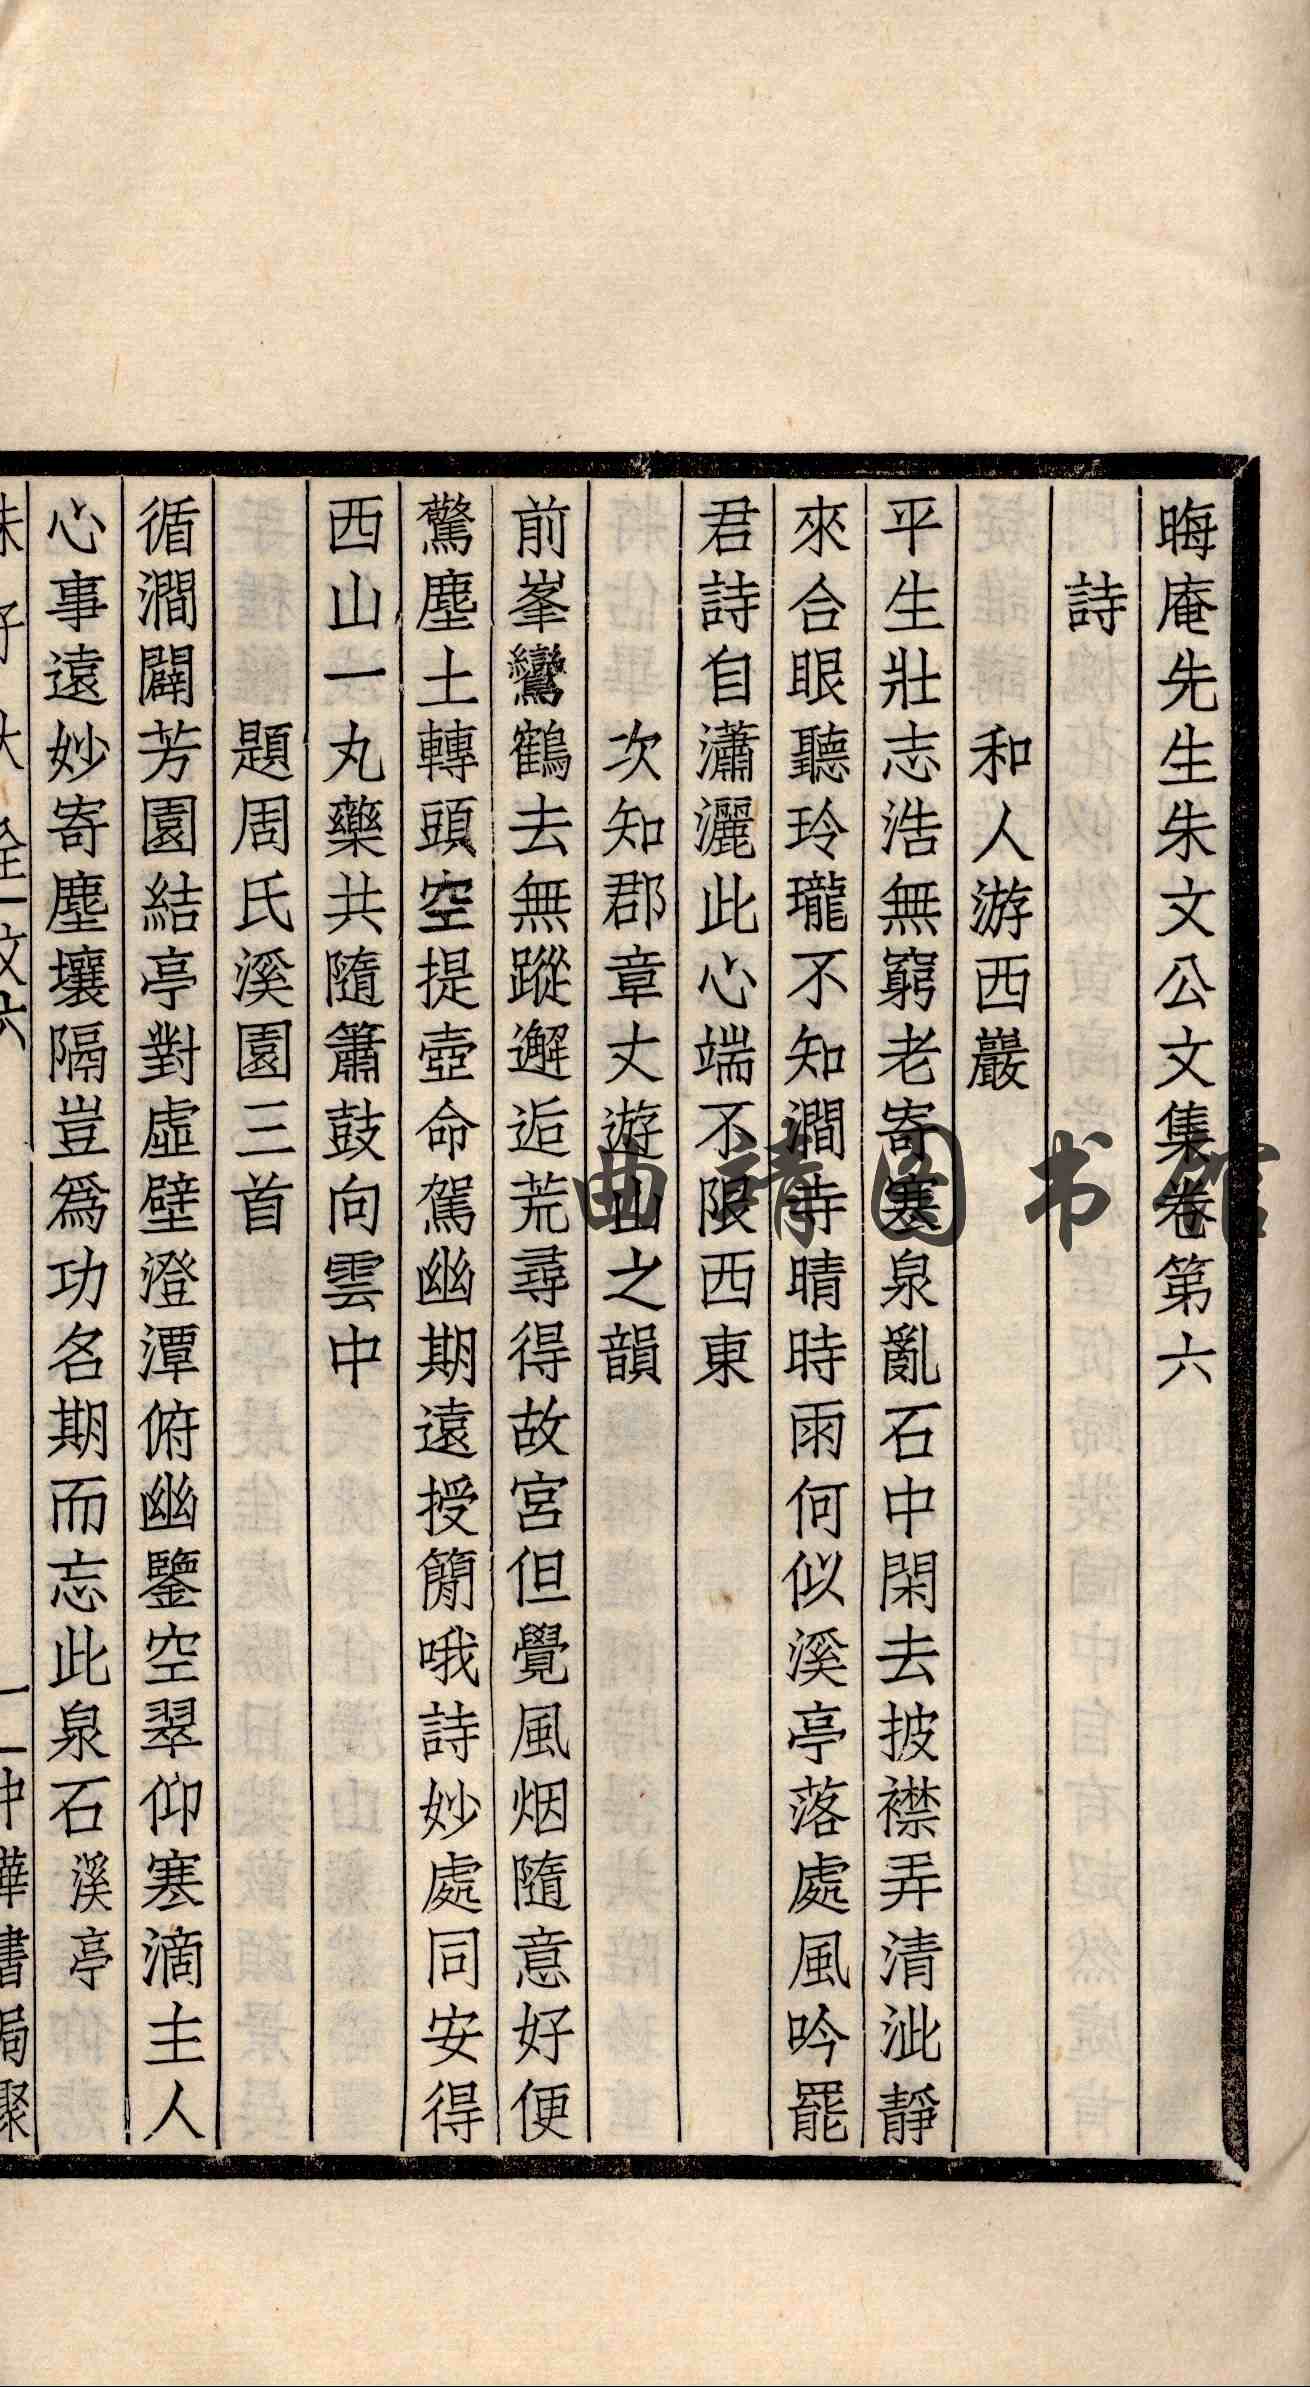 晦庵先生朱文公文集卷第六
詩
和人游西巖
平生壯志浩無窮老寄寒泉亂石中閑去披襟弄清泚靜
來合眼聽玲瓏不知澗寺晴時雨何似溪亭落處風吟罷
君詩自瀟灑此心端不限西東
次知郡章丈遊山之韻
前峯鸞鶴去無蹤邂逅荒尋得故宮但覺風烟隨意好便
驚塵土轉頭空提壺命駕幽期遠授簡哦詩妙處同安得
西山一丸藥共隨簫鼓向雲中
題周氏溪園三首
循澗闢芳園結亭對虛壁澄潭俯幽鑒空翠仰寒滴主人
心事遠妙寄塵壤隔豈爲功名期而忘此泉石溪亭
朱子大全文六
一中華書局聚
曲靖图书馆